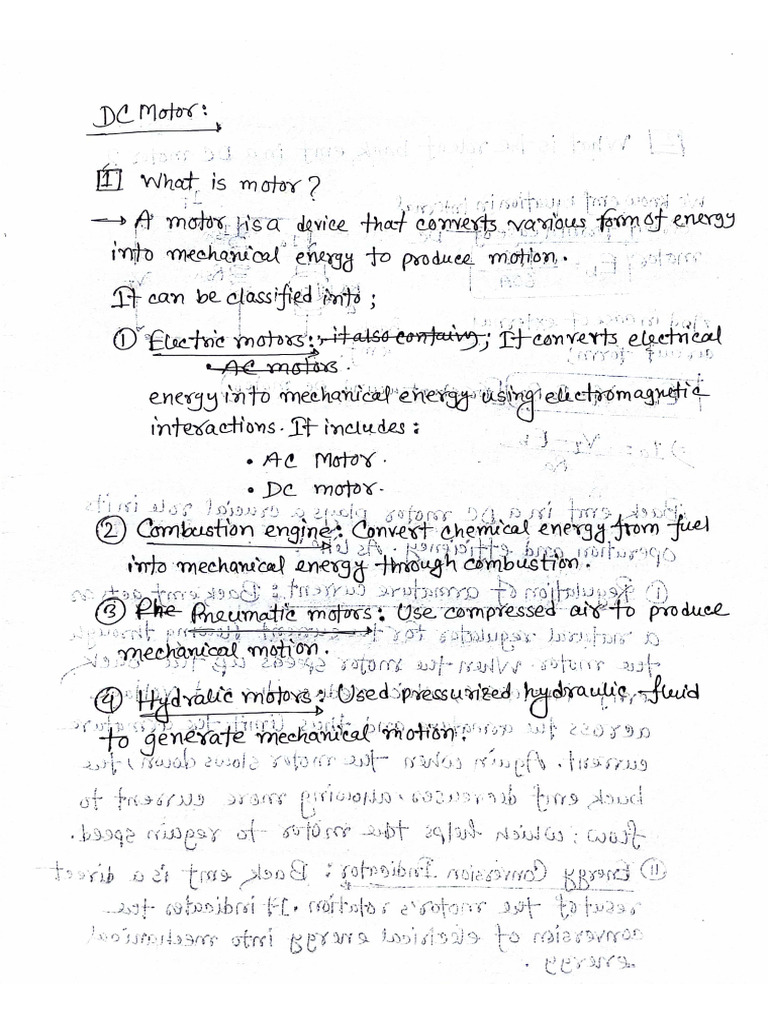 DC Motor:
1 What is motor?
→ A motor is a device that converts various form of energy
into mechanical energy to produce motion.
It can be classified into;
① Electric motors: it also contains; It converts electrical
• AC motors.
energy into mechanical energy using electromagnetic
interactions. It includes:
• AC Motor.
• DC motor.
② Combustion engine: Convert chemical energy from fuel
into mechanical energy through combustion.
③ Phe Pneumatic motors: Use compressed air to produce
mechanical motion.
④ Hydralic motors: Used pressurized hydraulic fluid
to generate mechanical motion.